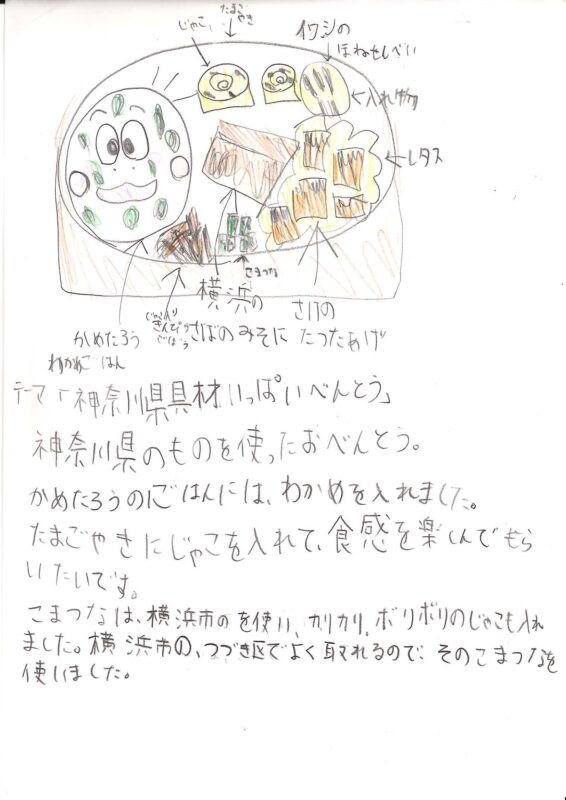 たまごやき
じゃこ
イワシの
ほねせんべい
入れ物
レタス
こまつな
横浜の
さけの
かめたろう
きんぴらごぼう
さばのみそに
たつたあげ
わかめごはん
テーマ「神奈川県具材いっぱいべんとう」
神奈川県のものを使ったおべんとう。
かめたろうのごはんには、わかめを入れました。
たまごやきにじゃこを入れて、食感を楽しんでもら
いたいです。
こまつなは、横浜市のを使い、カリカリ、ボリボリのじゃこも入れ
ました。横浜市の、つづき区でよく取れるので、そのこまつなを
使いました。